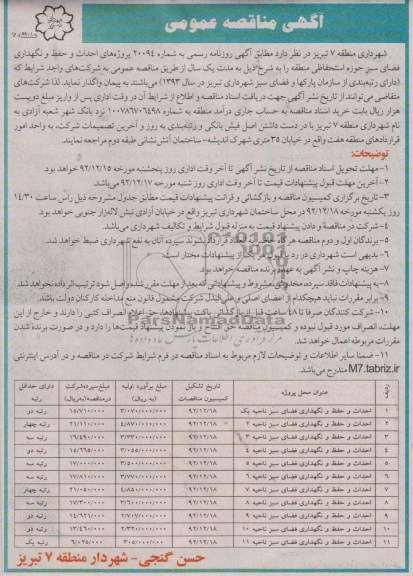 آگهی مناقصه عمومی
شهرداری منطقه ۷ تبریز در نظر دارد مطابق آگهی روزنامه رسمی به شماره ۲۰۰۹۴ پروژه‌های احداث و حفظ و نگهداری
فضای سبز حوزه استحفاظی منطقه را به شرح ذیل به مدت یک سال از طریق مناقصه عمومی به شرکت‌های واجد شرایط که
(دارای رتبه‌بندی از سازمان پارکها و فضای سبز شهرداری تبریز در سال ۱۳۹۳) می‌باشند به پیمان واگذار نماید. لذا شرکت‌های
متقاضی می‌توانند از تاریخ نشر آگهی جهت دریافت اسناد مناقصه و اطلاع از شرایط آن در وقت اداری پس از واریز مبلغ دویست
هزار ریال بابت خرید اسناد مناقصه به حساب جاری درآمد منطقه به شماره ۱۰۰۷۸۶۷۰۶۴۹۸ نزد بانک شهر شعبه آزادی به
نام شهرداری منطقه ۷ تبریز با در دست داشتن اصل فیش بانکی و رتبه‌بندی به روز و آخرین تصمیمات شرکت، به واحد امور
قراردادهای منطقه هفت واقع در خیابان ۳۵ متری شهرک اندیشه- ساختمان آتش نشانی طبقه دوم مراجعه نمایند.
توضیحات:
۱- مهلت تحویل اسناد مناقصه از تاریخ نشر آگهی تا آخر وقت اداری روز پنجشنبه مورخه ۹۲/۱۲/۱۵ خواهد بود.
۲- آخرین مهلت قبول پیشنهادات قیمت تا آخر وقت اداری روز شنبه مورخه ۹۲/۱۲/۱۷ می‌باشد.
۳- تاریخ برگزاری کمیسیون مناقصه و بازگشائی و قرائت پیشنهادات قیمت مطابق جدول مشروحه ذیل راس ساعت ۱۴/۳۰
روز یکشنبه مورخه ۹۲/۱۲/۱۸ در محل ساختمان شهرداری تبریز واقع در خیابان آزادی نبش لاله‌زار جنوبی خواهد بود.
۴- شرکت در مناقصه و دادن پیشنهاد قیمت به منزله قبول شرایط و تکالیف شهرداری می‌باشد.
۵- برندگان اول و دوم مناقصه هرگاه حاضر به انعقاد قرارداد نشوند سپرده آنان به نفع شهرداری ضبط خواهد شد.
۶- بدیهی است شهرداری در رد یا قبول هر یک از پیشنهادات مختار است.
۷- هزینه چاپ و نشر آگهی به عهده برنده مناقصه خواهد بود.
۸- به پیشنهادات فاقد سپرده، مخدوش، مشروط و پیشنهاداتی که بعد از مهلت مقرر شده واصل شود ترتیب اثر داده نخواهد شد.
۹- برابر مقررات نباید هیچکدام از اعضای اصلی و علی البدل شرکت مشمول قانون منع مداخله کارکنان دولت باشد.
۱۰- شرکت کنندگان صرفا تا ۴۸ ساعت قبل از بازگشائی پاکت پیشنهادها، حق اعلام انصراف کتبی را دارند و خارج از این
مهلت، انصراف مورد قبول نبوده و کمیسیون مناقصه حق افتتاح و ریال نمودن پیشنهاد قیمت‌ها را دارد و در صورت برنده شدن
مقررات مربوطه اعمال خواهد شد.
۱۱- ضمنا سایر اطلاعات و توضیحات لازم مربوط به اسناد مناقصه در فرم شرایط شرکت در مناقصه و در آدرس اینترنتی
M7.tabriz.ir مندرج می‌باشد.
ParsNamadData
ردیف عنوان محل پروژه تاریخ تشکیل کمیسیون مناقصات مبلغ برآورد اولیه (به ریال) مبلغ سپرده شرکت در مناقصه (به ریال) دارای حداقل رتبه
۱ احداث و حفظ و نگهداری فضای سبز ناحیه یک ۹۲/۱۲/۱۸ ۳/۰۷۰/۰۰۰/۰۰۰ ۱۵/۷۱۰/۰۰۰ رتبه دو
۲ احداث و حفظ و نگهداری فضای سبز ناحیه ۲ ۹۲/۱۲/۱۸ ۴/۸۷۰/۰۰۰/۰۰۰ ۲۱/۱۱۰/۰۰۰ رتبه چهار
۳ احداث و حفظ و نگهداری فضای سبز ناحیه ۳ ۹۲/۱۲/۱۸ ۳/۳۳۰/۰۰۰/۰۰۰ ۱۶/۴۹۰/۰۰۰ رتبه سه
۴ احداث و حفظ و نگهداری فضای سبز ناحیه ۴ ۹۲/۱۲/۱۸ ۳/۰۵۵/۰۰۰/۰۰۰ ۱۵/۶۶۵/۰۰۰ رتبه دو
۵ احداث و حفظ و نگهداری فضای سبز ناحیه ۵ ۹۲/۱۲/۱۸ ۳/۵۰۰/۰۰۰/۰۰۰ ۱۷/۰۰۰/۰۰۰ رتبه سه
۶ احداث و حفظ و نگهداری فضای سبز ناحیه ۶ ۹۲/۱۲/۱۸ ۳/۷۷۰/۰۰۰/۰۰۰ ۱۷/۸۱۰/۰۰۰ رتبه سه
۷ احداث و حفظ و نگهداری فضای سبز ناحیه ۷ ۹۲/۱۲/۱۸ ۴/۸۵۰/۰۰۰/۰۰۰ ۲۱/۰۵۰/۰۰۰ رتبه چهار
۸ احداث و حفظ و نگهداری فضای سبز ناحیه ۸ ۹۲/۱۲/۱۸ ۳/۶۰۰/۰۰۰/۰۰۰ ۱۷/۳۰۰/۰۰۰ رتبه سه
۹ احداث و حفظ و نگهداری فضای سبز ناحیه ۹ ۹۲/۱۲/۱۸ ۲/۷۰۷/۰۰۰/۰۰۰ ۱۴/۶۲۱/۰۰۰ رتبه دو
۱۰ احداث و حفظ و نگهداری فضای سبز ناحیه ۱۰ ۹۲/۱۲/۱۸ ۲/۳۲۰/۰۰۰/۰۰۰ ۱۳/۴۶۰/۰۰۰ رتبه دو
۱۱ احداث و حفظ و نگهداری فضای سبز ناحیه ۱۱ ۹۲/۱۲/۱۸ ۳۰۵/۰۰۰/۰۰۰ ۶/۰۲۵/۰۰۰ رتبه یک
حسن گنجی- شهردار منطقه ۷ تبریز